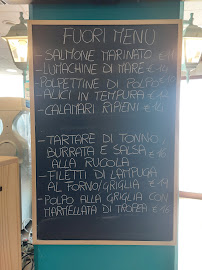 FUORI MENU
- SALMONE MARINATO €14
- LUMACHINE DI MARE €10
- POLPETTINE DI POLPO €10
- ALICI IN TEMPURA €12
- CALAMARI RIPIENI €16
- TARTARE DI TONNO,
BURRATA E SALSA €16
ALLA RUCOLA
- FILETTI DI LAMPUGA
AL FORNO/GRIGLIA €19
- POLPO ALLA GRIGLIA CON
MARMELLATA DI TROPEA €16